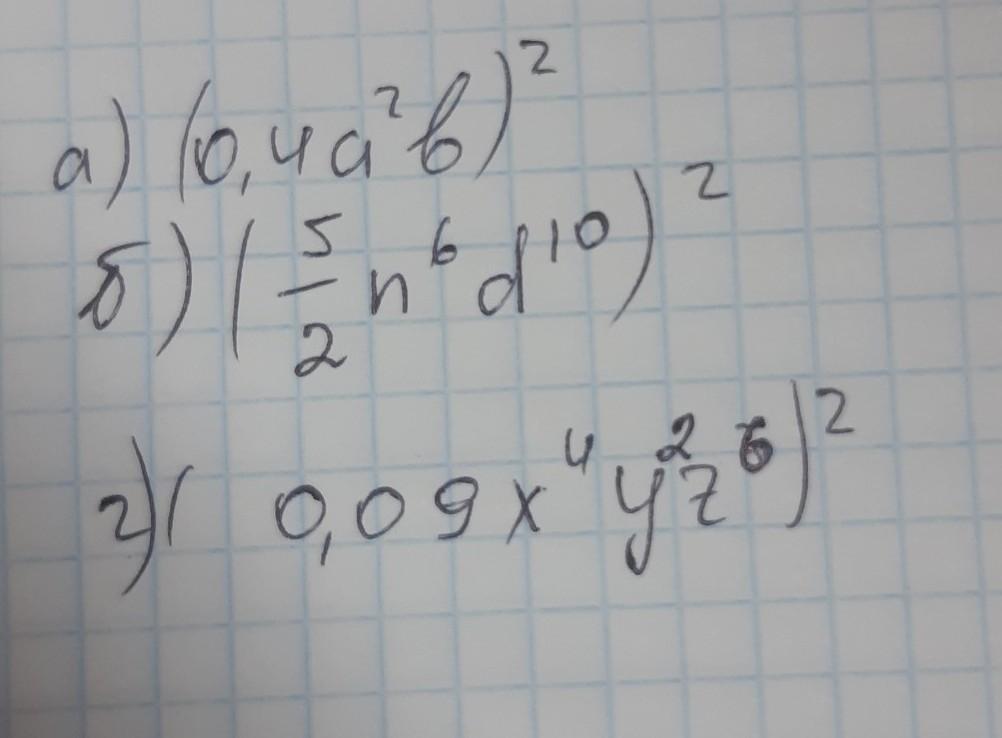 а) (0,4a²b)²
б) (5/2 n⁶ d¹⁰)²
г) (0,09x⁴y²z⁶)²